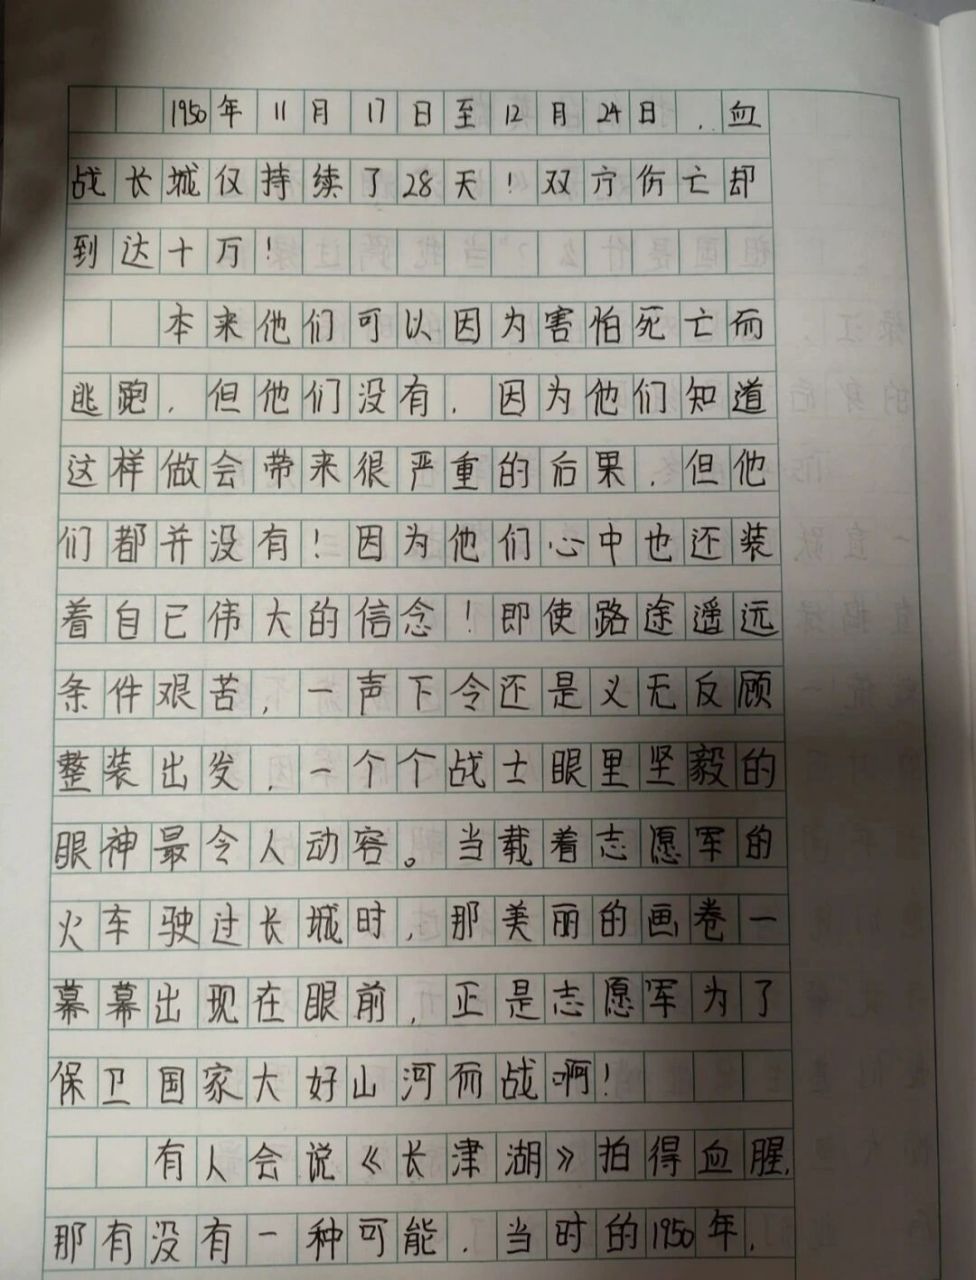 1950年11月17日至12月24日，血
战长城仅持续了28天！双方伤亡却
到达十万！
本来他们可以因为害怕死亡而
逃跑，但他们没有，因为他们知道
这样做会带来很严重的后果，但他
们都并没有！因为他们心中也还装
着自已伟大的信念！即使路途遥远
条件艰苦，一声下令还是义无反顾
整装出发，一个个战士眼里坚毅的
眼神最令人动容。当载着志愿军的
火车驶过长城时，那美丽的画卷一
幕幕出现在眼前，正是志愿军为了
保卫国家大好山河而战啊！
有人会说《长津湖》拍得血腥，
那有没有一种可能，当时的1950年，